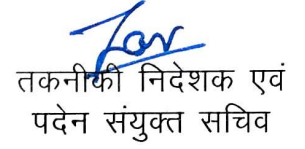 तकनीकी निदेशक एवं
पदेन संयुक्त सचिव